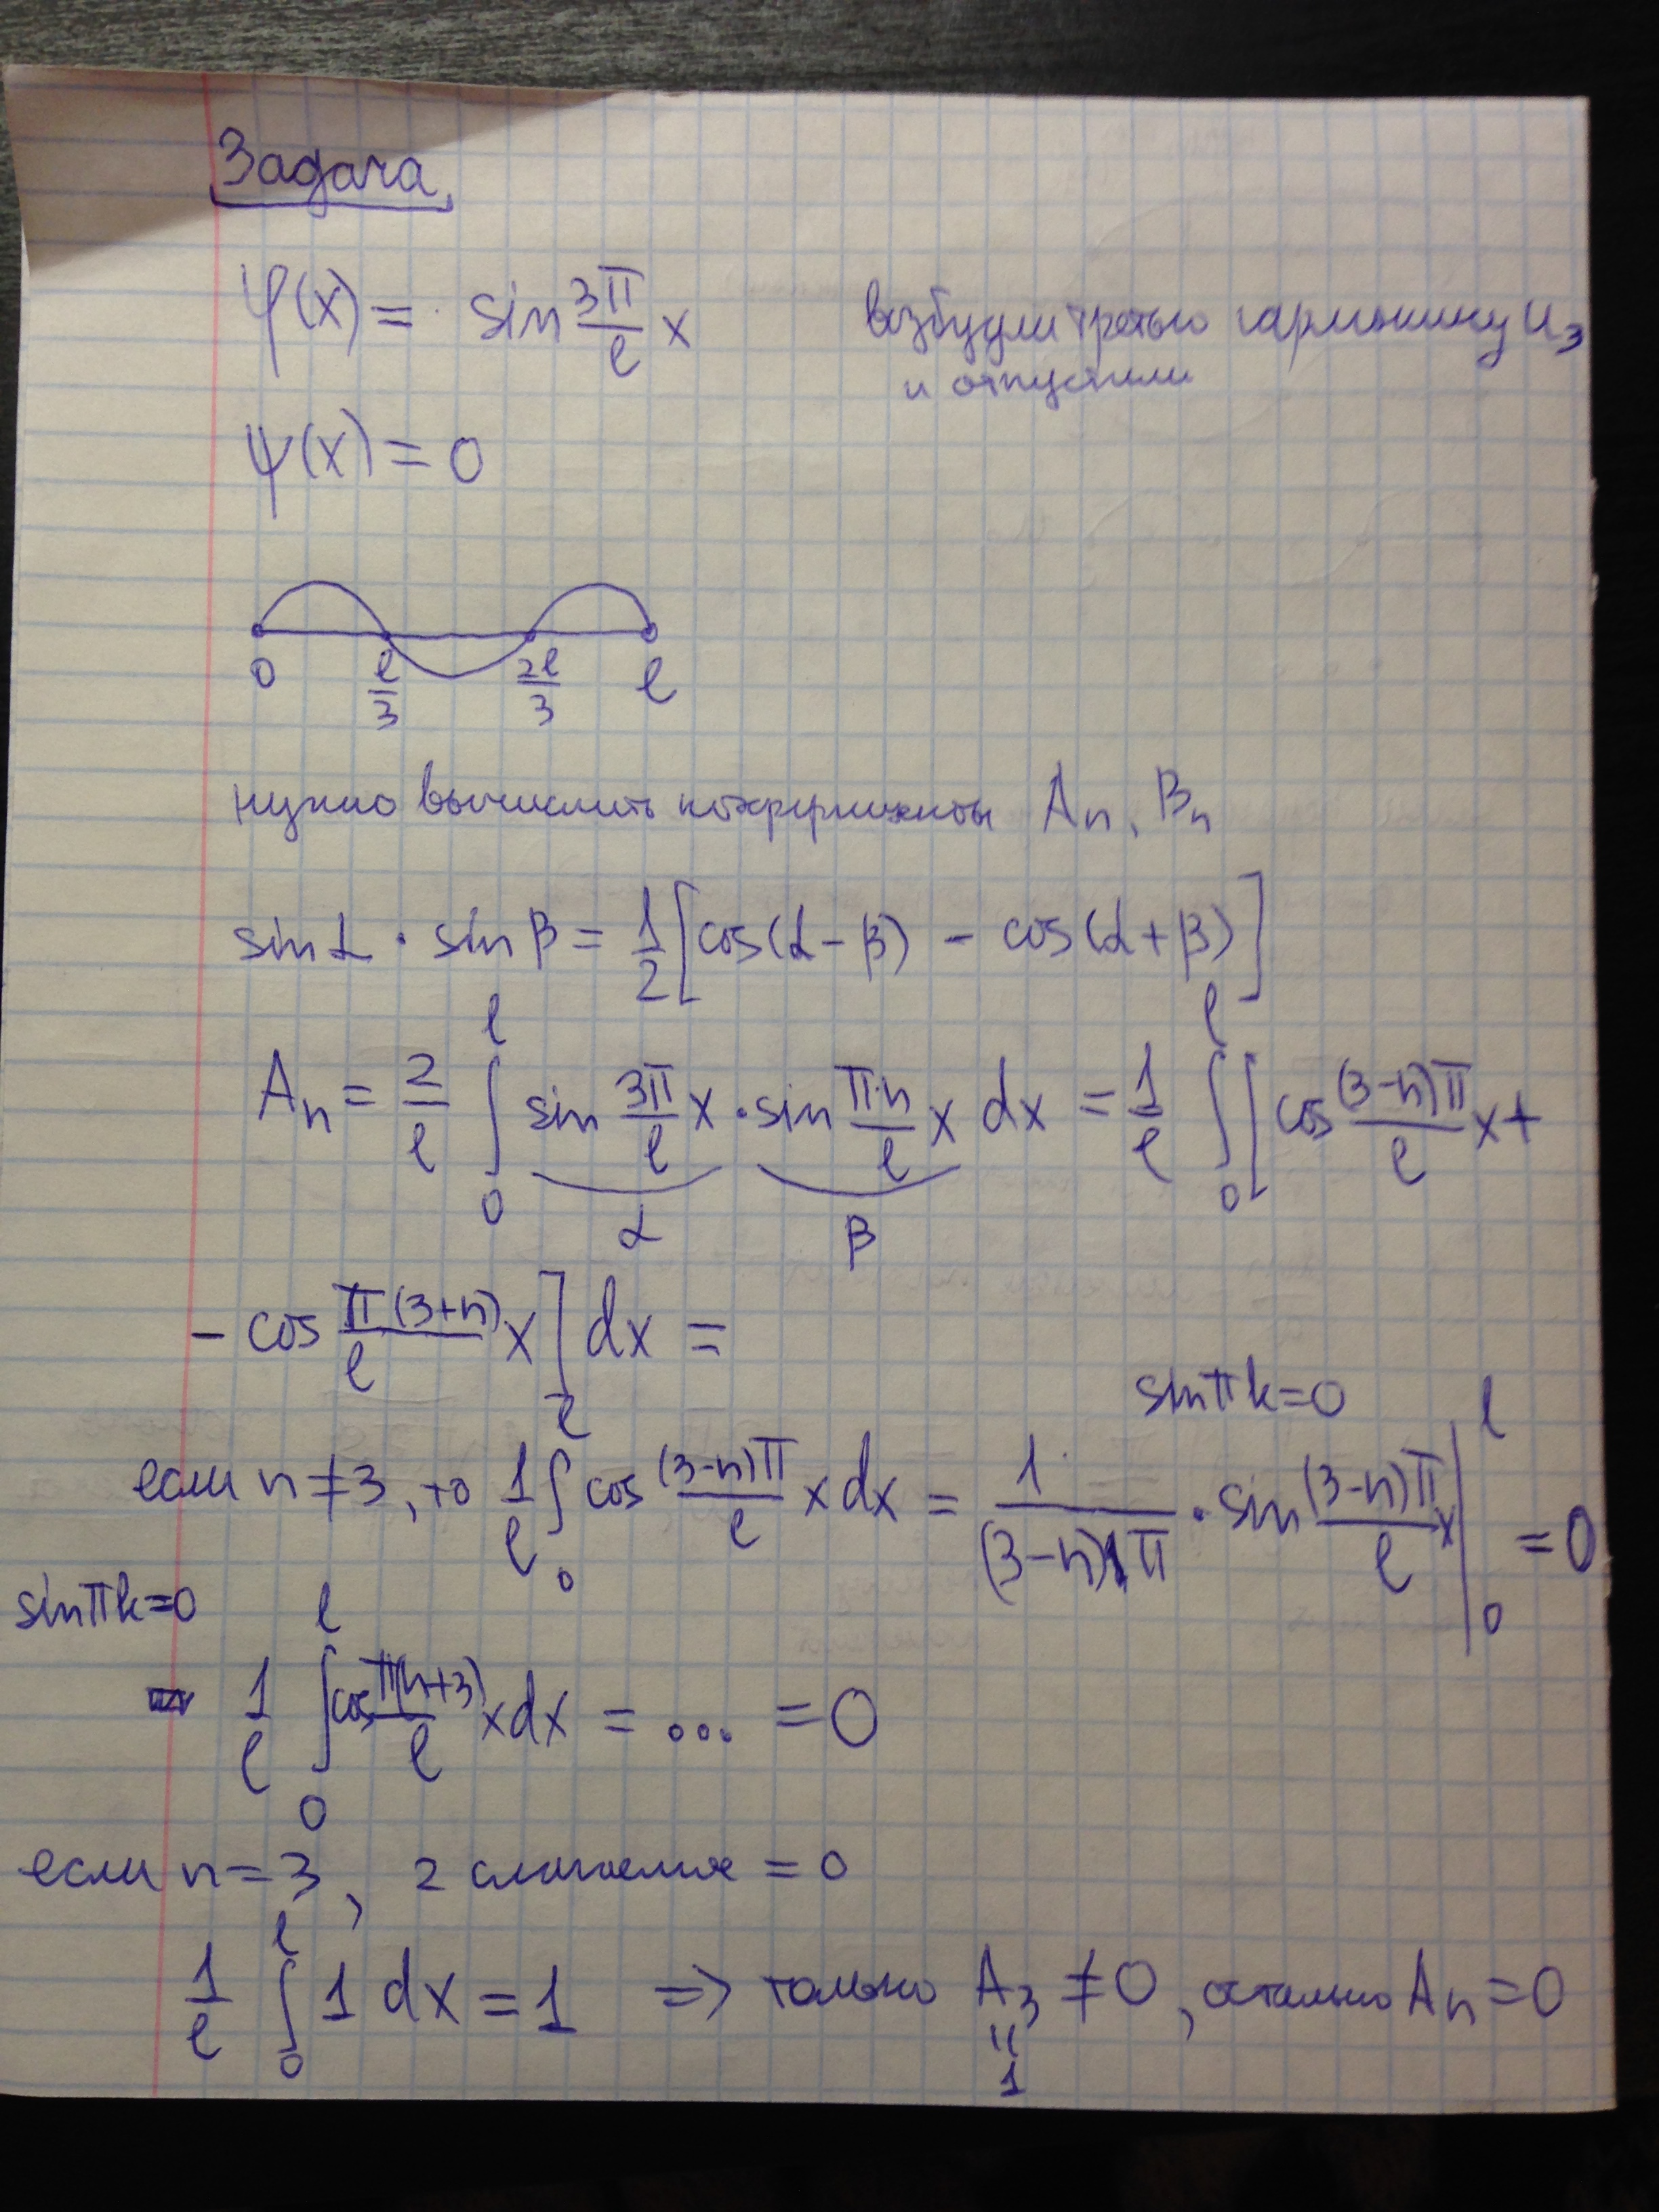 Задача
φ(x) = sin 3π/ℓ x возбудили третью гармонику u₃
и отпустили
ψ(x) = 0
0 ℓ/3 2ℓ/3 ℓ
нужно вычислить коэффициенты Aₙ, Bₙ
sin α · sin β = 1/2 [cos(α − β) − cos(α + β)]
Aₙ = 2/ℓ ∫₀^ℓ sin 3π/ℓ x · sin π·n/ℓ x dx = 1/ℓ ∫₀^ℓ [cos (3−n)π/ℓ x +
α β
− cos π(3+n)/ℓ x] dx =
sin πk = 0
если n ≠ 3, то 1/ℓ ∫₀^ℓ cos (3−n)π/ℓ x dx = 1/(3−n)π · sin (3−n)π/ℓ x |₀^ℓ = 0
sin πk = 0
1/ℓ ∫₀^ℓ cos π(n+3)/ℓ x dx = ... = 0
если n = 3, 2 слагаемое = 0
1/ℓ ∫₀^ℓ 1 dx = 1 ⇒ только A₃ ≠ 0, остально Aₙ = 0
=
1